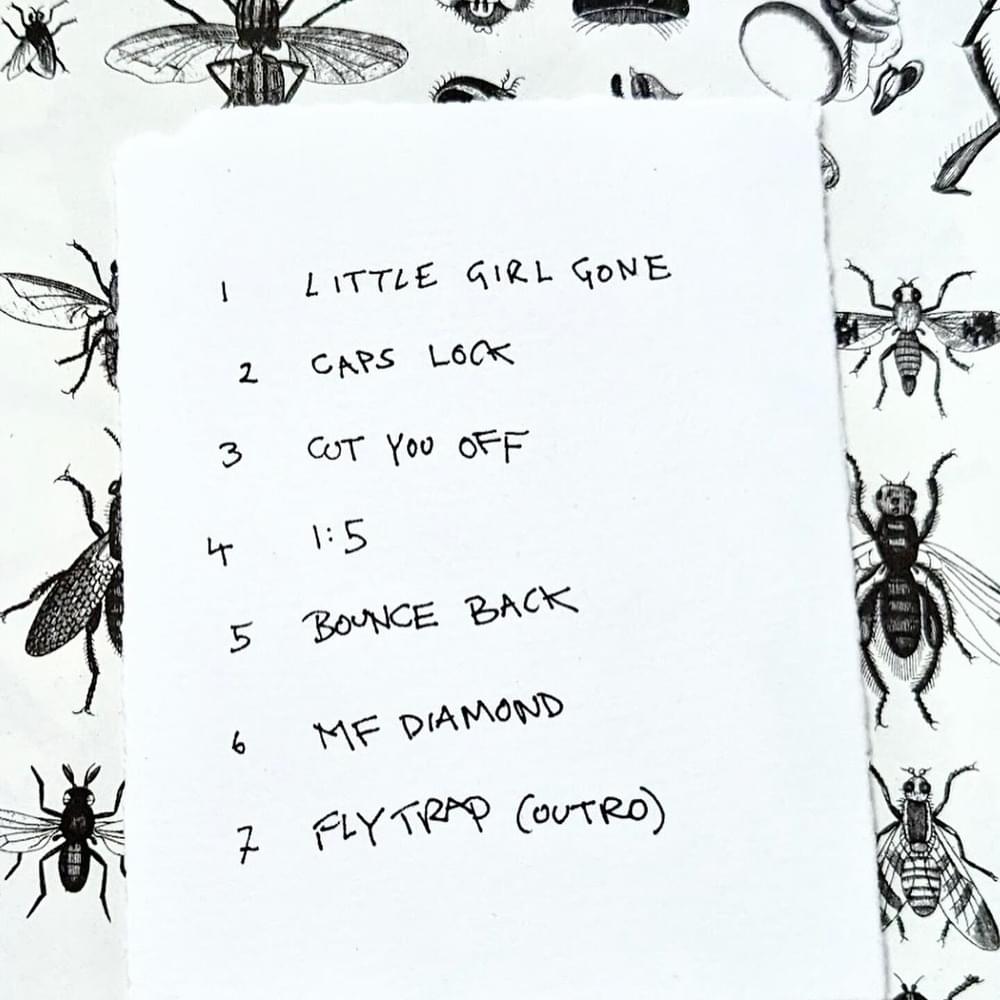 1 LITTLE GIRL GONE
2 CAPS LOCK
3 CUT YOU OFF
4 1:5
5 BOUNCE BACK
6 MF DIAMOND
7 FLYTRAP (OUTRO)